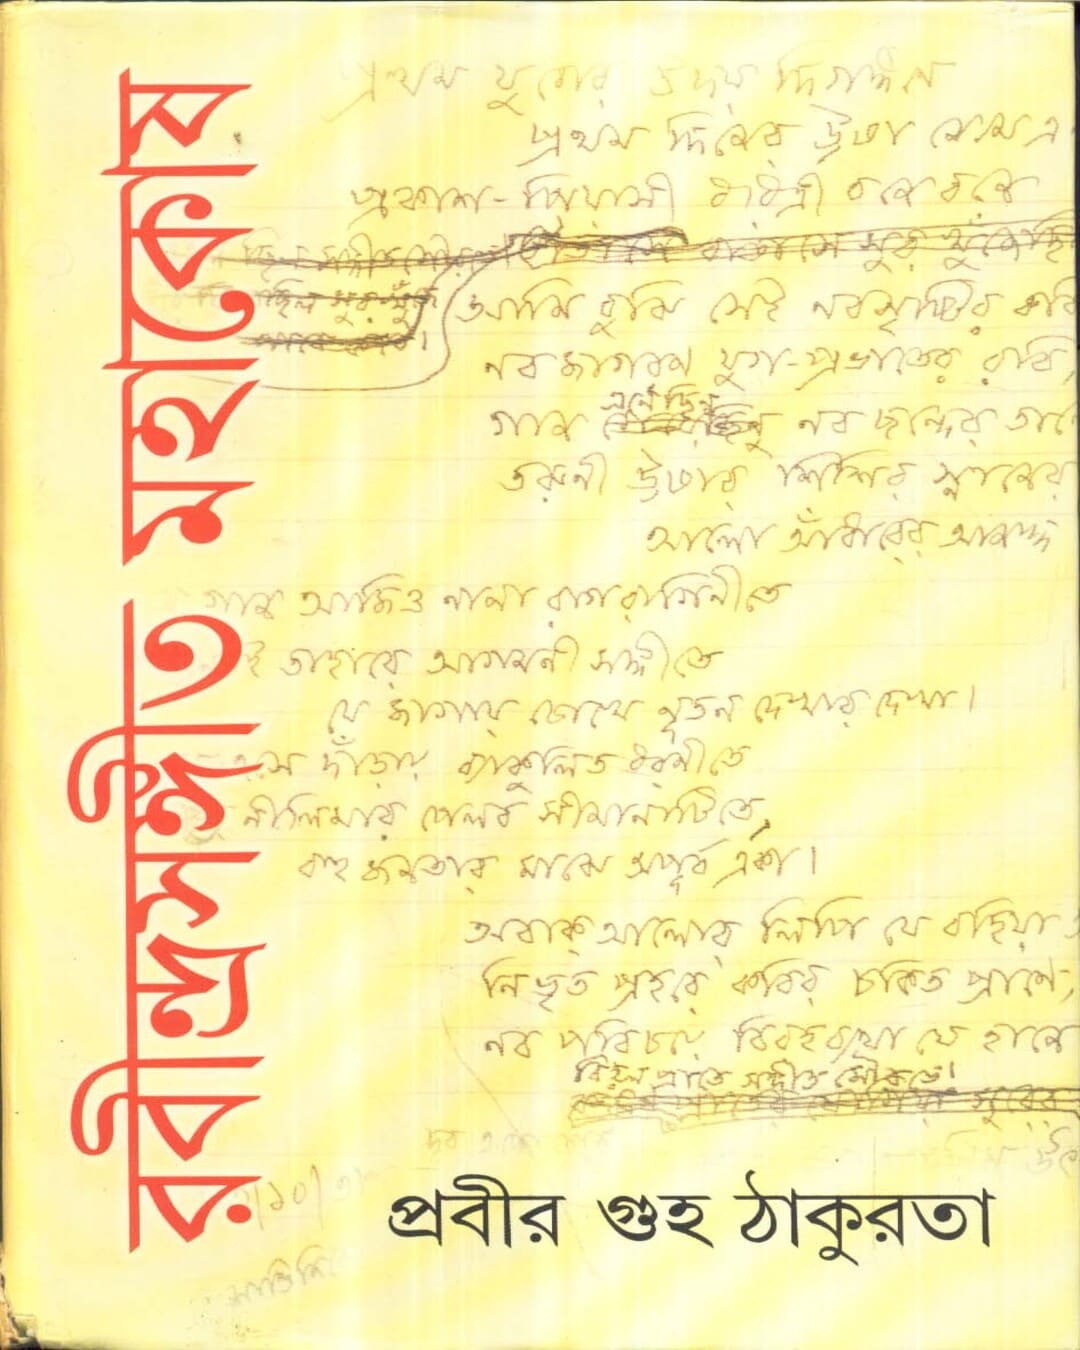 রবীন্দ্রসঙ্গীত মহাকোষ
প্রথম যুগের উদয় দিগঙ্গনে
প্রথম দিনের উষা নেমে এ
প্রকাশ-পিয়াসী ধরিত্রী বনে বনে
সুর খুঁজেছি
আমি কবি সেই নবসৃষ্টির কবি
নবজাগরণ যুগ-প্রভাতের রবি,
গান এনেছিনু নব ছন্দের তালে
তরুণী উষার শিশির স্নানের
আলো আঁধারের আনন্দ
গান আজিও নানা রাগরাগিনীতে
ই তাহারে আগমনী সঙ্গীতে
যে জাগায় চোখে নূতন দেখার দেখা।
এসে দাঁড়ায় ব্যাকুলিত ধরণীতে
নীলিমার পেলব সীমানাটিতে,
বহু জনতার মাঝে অপূর্ব একা।
অবাক আলোর লিপি যে বহিয়া
নিভৃত প্রহরে কবির চকিত প্রাণে,
নব পরিচয়ে বিরহব্যথা যে হানে
বিহ্বল প্রাতে সঙ্গীত সৌরভে।
প্রবীর গুহ ঠাকুরতা